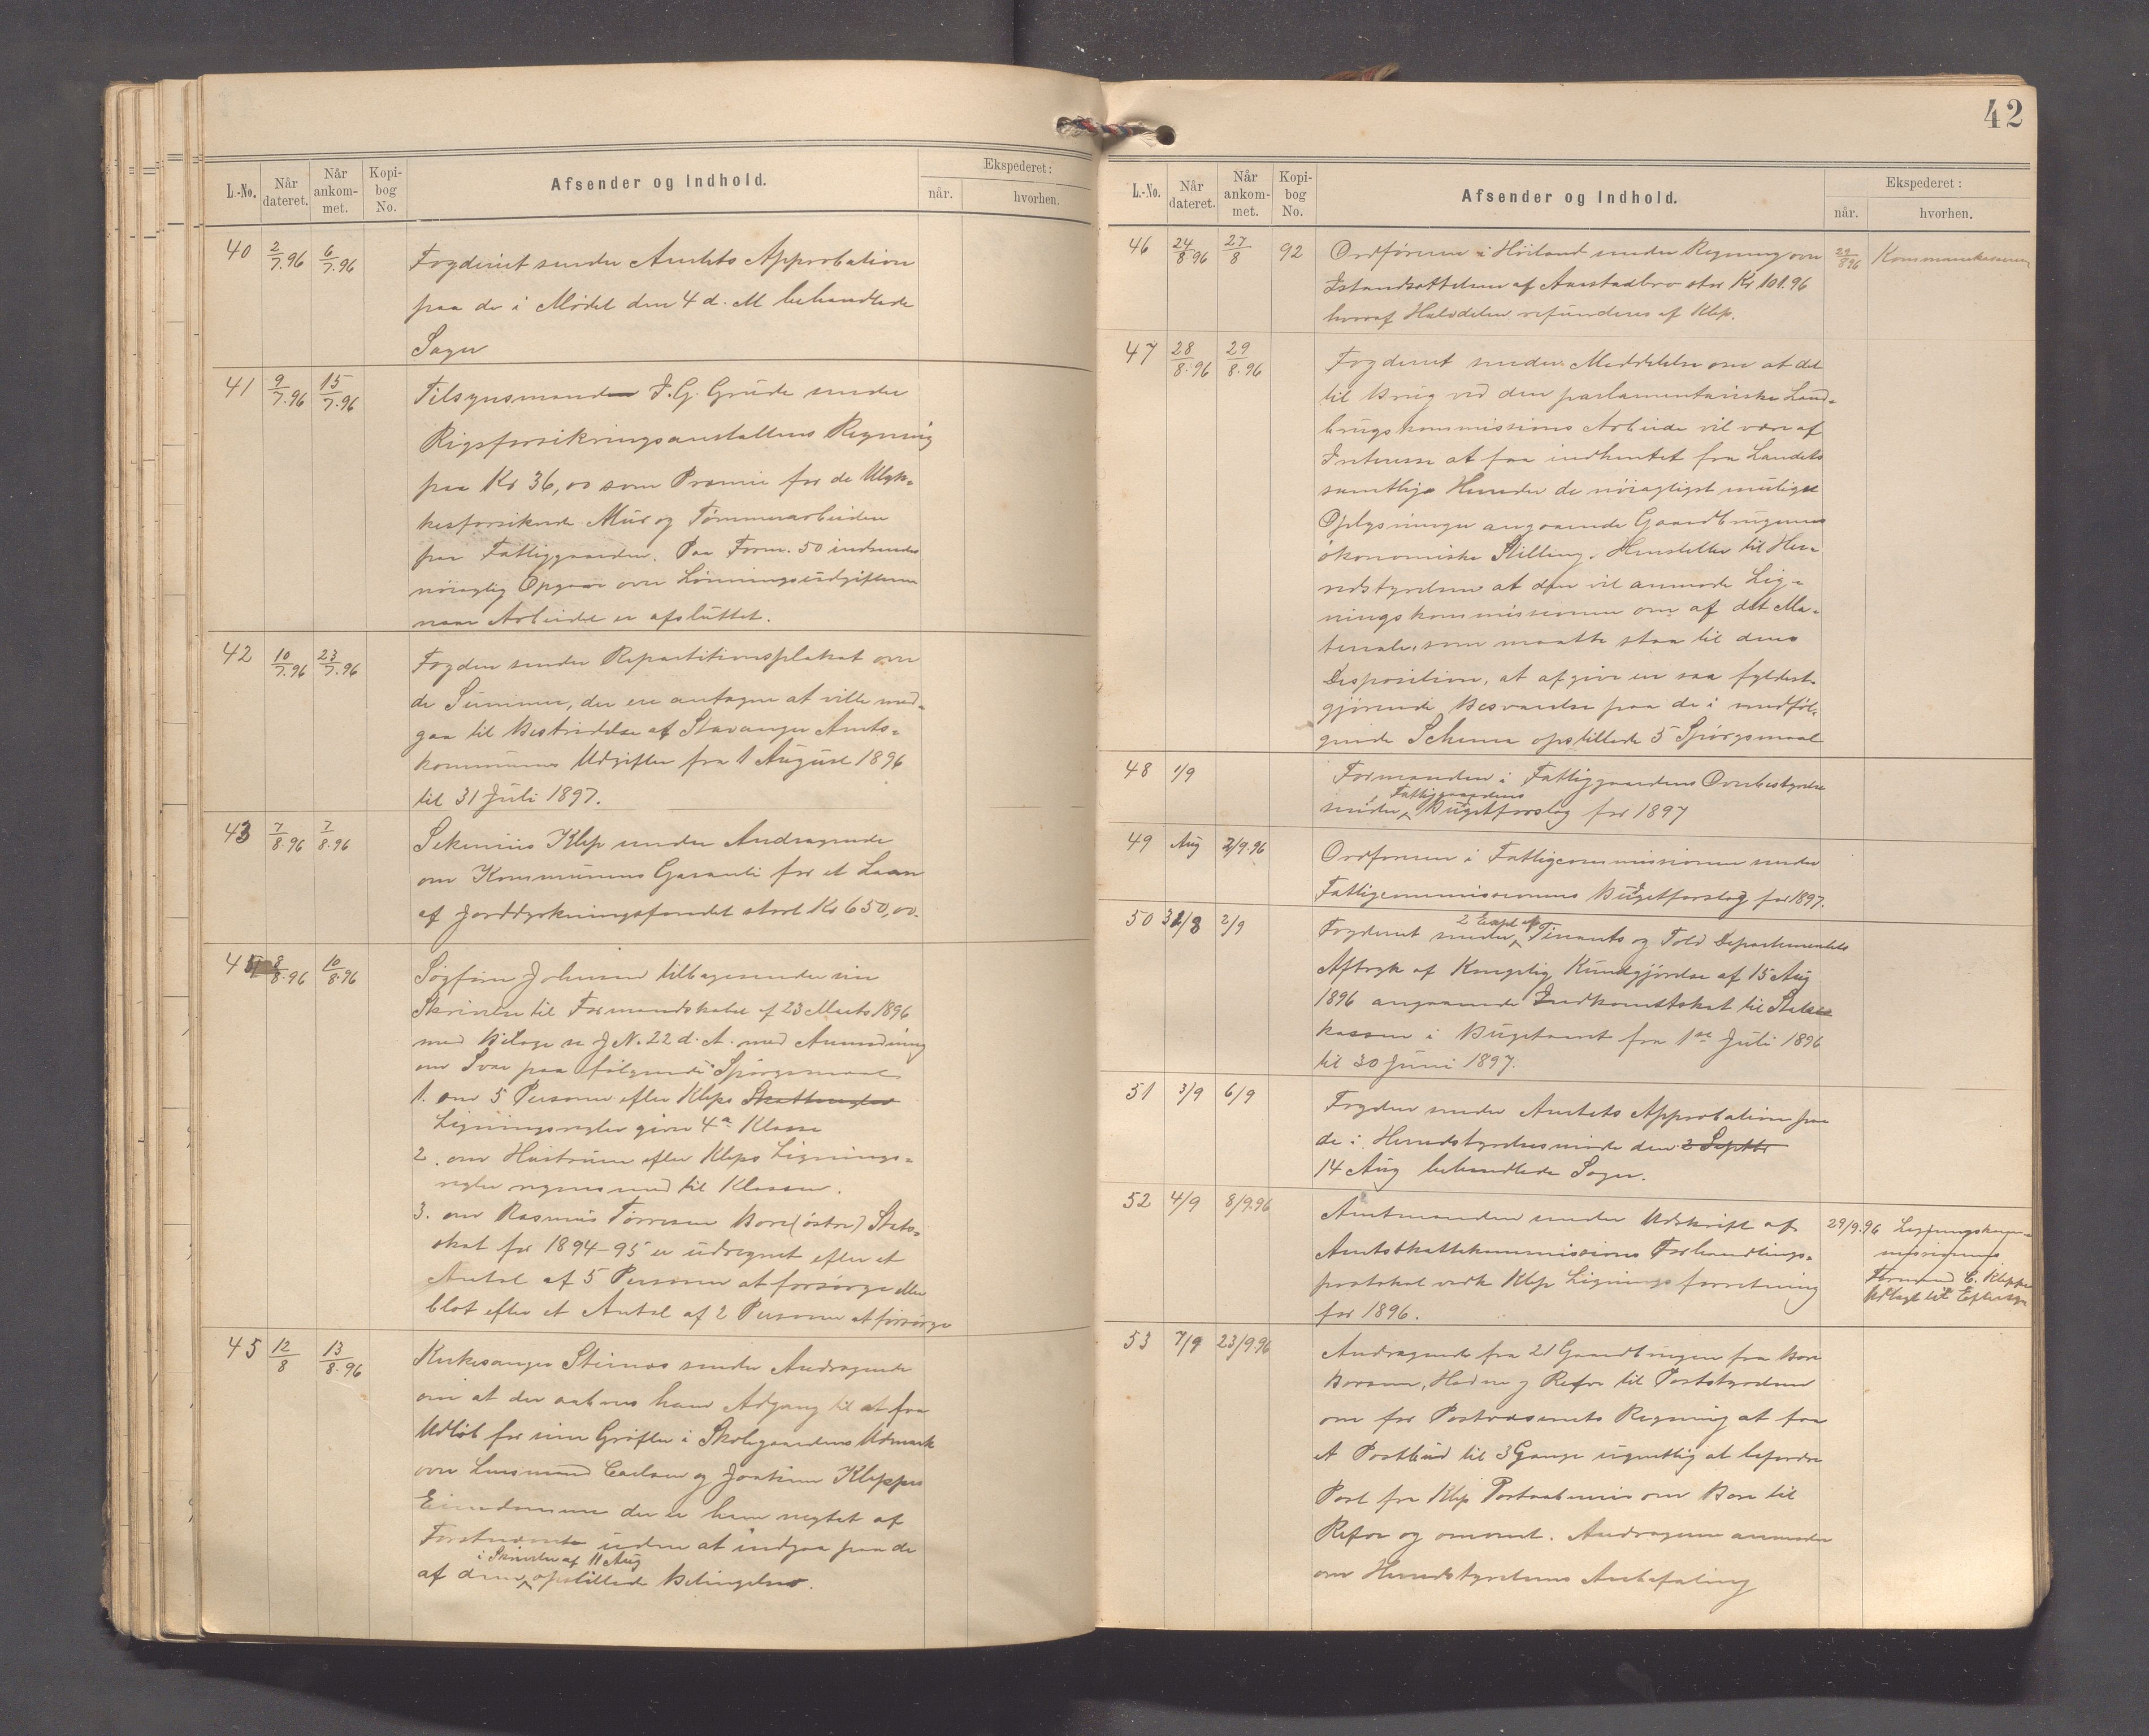 L.-No. Når dateret. Når ankom-met. Kopi-bog No. Afsender og Indhold. Ekspederet: når. hvorhen.
40 2/7.96 6/7.96 Fogderiet sender Amtets Approbation
paa de i Mødet den 4 d. M behandlede
Sager
41 9/7.96 15/7.96 Tilsynsmanden J. G. Grude sender
Rigsforsikringsanstaltens Regning
paa Kr 36,00 som Præmie for de Ulyk-
kesforsikrede Mur og Tømmerarbeiden
paa Fattiggaarden. Paa Form. 50 indsendes
nøiagtig Opgave over Lønningsudgifterne
naar Arbeidet er afsluttet.
42 10/7.96 23/7.96 Fogden sender Repartitionsplakat over
de Summer, der ere antagne at ville med-
gaa til Bestridelse af Stavanger Amts-
kommunes Udgifter fra 1 August 1896
til 31 Juli 1897.
43 7/8.96 7/8.96 Sekenius Klep sender Andragende
om Kommunens Garanti for et Laan
af Jorddyrkningsfondet stort Kr 650,00.
8/8.96 10/8.96 Johnsen tilbagesender sin
Skrivelse til Formandskabet af 23 Marts 1896
med Bilage se J N. 22 d. A. med Anmodning
om Svar paa følgende Spørgsmaal
1. om 5 Personer efter Kleps Skatteregler
Ligningsregler giver 4de Klasse
2. om Hustruen efter Kleps Lignings-
regler regnes med til Klassen.
3. om Rasmus Tørresen Bore (østre) Stats-
skat for 1894-95 er udregnet efter et
Antal af 5 Personer at forsørge eller
blot efter et Antal af 2 Personer at forsørge
45 12/8 13/8.96 Kirkesanger Steinnes sender Andragende
om at der aabnes ham Adgang til at faa
Udløb for sine Grøfter i Skolegaardens Udmark
over Lensmand Carlsen og Joakim Kleppes
Eiendomme der er ham negtet af
Førstnævnte uden at indgaa paa de
i Skrivelse af 11 Aug
af dem opstillede Betingelser.
42
L.-No. Når dateret. Når ankom-met. Kopi-bog No. Afsender og Indhold. Ekspederet: når. hvorhen.
46 24/8 96 27/8 92 Ordføreren i Høiland sender Regning over 29/8 96 Kommunekasseren
Istandsættelsen af Aarstadbro stor Kr 101.96
hvoraf Halvdelen refunderes af Klep.
47 28/8.96 29/8.96 Fogderiet sender Meddelelse om at det
til Brug ved den parlamentariske Land-
brugskommissions Arbeide vil være af
Interesse at faa indhentet fra Landets
samtlige Herreder de nøiagtigst mulige
Oplysninger angaaende Gaardbrugernes
økonomiske Stilling. Henstiller til Her-
redsstyrelsen at den vil anmode Lig-
ningskommissionen om af det Ma-
teriale, som maatte staa til dens
Disposition, at afgive en saa fyldest-
gjørende Besvarelse paa de i medføl-
gende Schema opstillede 5 Spørgsmaal
48 1/9 Formanden i Fattiggaardens Overbestyrelse
Fattiggaardens
sender Bugetforslag for 1897
49 Aug 2/9.96 Ordføreren i Fattigcommissionen sender
Fattigcommissionens Bugetforslag for 1897.
2 Expl af
50 31/8 2/9 Fogderiet sender Finants og Told Departementets
Aftryk af Kongelig Kundgjørelse af 15 Aug
1896 angaaende Indkomstskat til Stats
kassen i Bugetaaret fra 1ste Juli 1896
til 30 Juni 1897.
51 3/9 6/9 Fogden sender Amtets Approbation paa
de i Herredsstyrelsesmøde den 2 Septbr
14 Aug behandlede Sager.
52 4/9 8/9.96 Amtmanden sender Udskrift af 29/9.96 Ligningskom-
Amtsskattekommissions Forhandlings- missionens
protokol vedk Klep Ligningsforretning Formand C. Kleppe
for 1896. Udlagt til Eftersyn
53 7/9 23/9.96 Andragende fra 21 Gaardbrugere fra Bore
Borsum, Hodne og Refve til Poststyrelsen
om for Postvæsenets Regning at faa
et Postbud til 3 Gange ugentlig at befordre
Post fra Klep Postaabneri over Bore til
Refve og omvendt. Andragerne anmoder
om Herredsstyrelsens Anbefaling